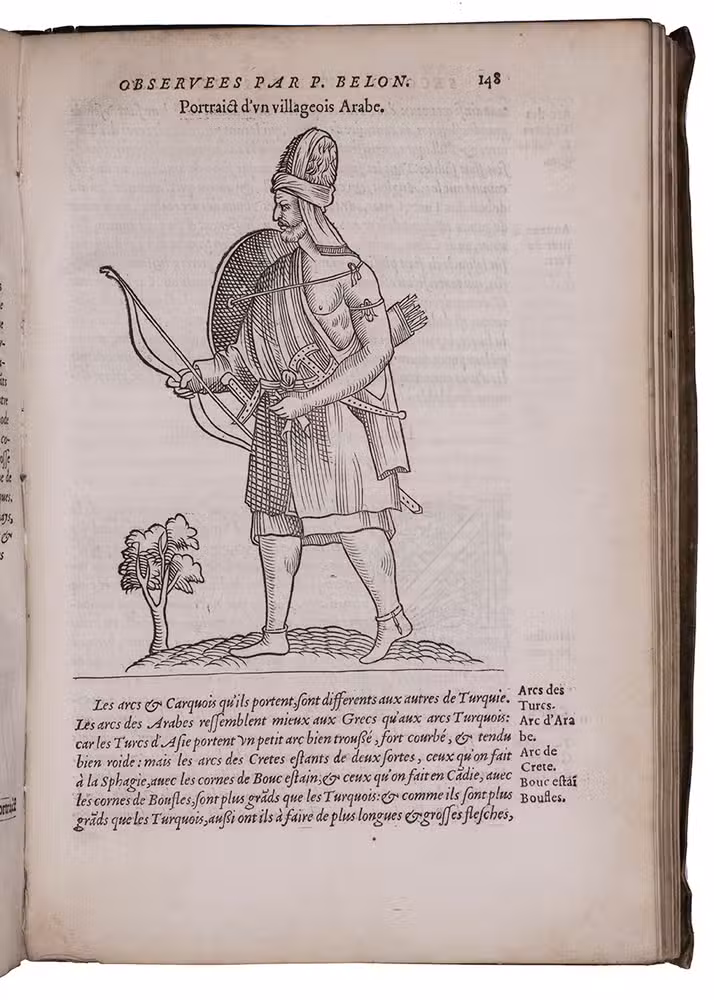 OBSERVEES PAR P. BELON. 148
Portraict d'vn villageois Arabe.
Les arcs & Carquois qu'ils portent, sont differents aux autres de Turquie.
Les arcs des Arabes ressemblent mieux aux Grecs qu'aux arcs Turquois:
car les Turcs d'Asie portent vn petit arc bien troussé, fort courbé, & tendu
bien roide: mais les arcs des Cretes estants de deux sortes, ceux qu'on fait
à la Sphagie, auec les cornes de Bouc estain, & ceux qu'on fait en Cādie, auec
les cornes de Boufles, sont plus grāds que les Turquois: & comme ils sont plus
grāds que les Turquois, außi ont ils à faire de plus longues & grosses flesches,
Arcs des
Turcs.
Arc d'Ara
be.
Arc de
Crete.
Bouc estaī
Boufles.